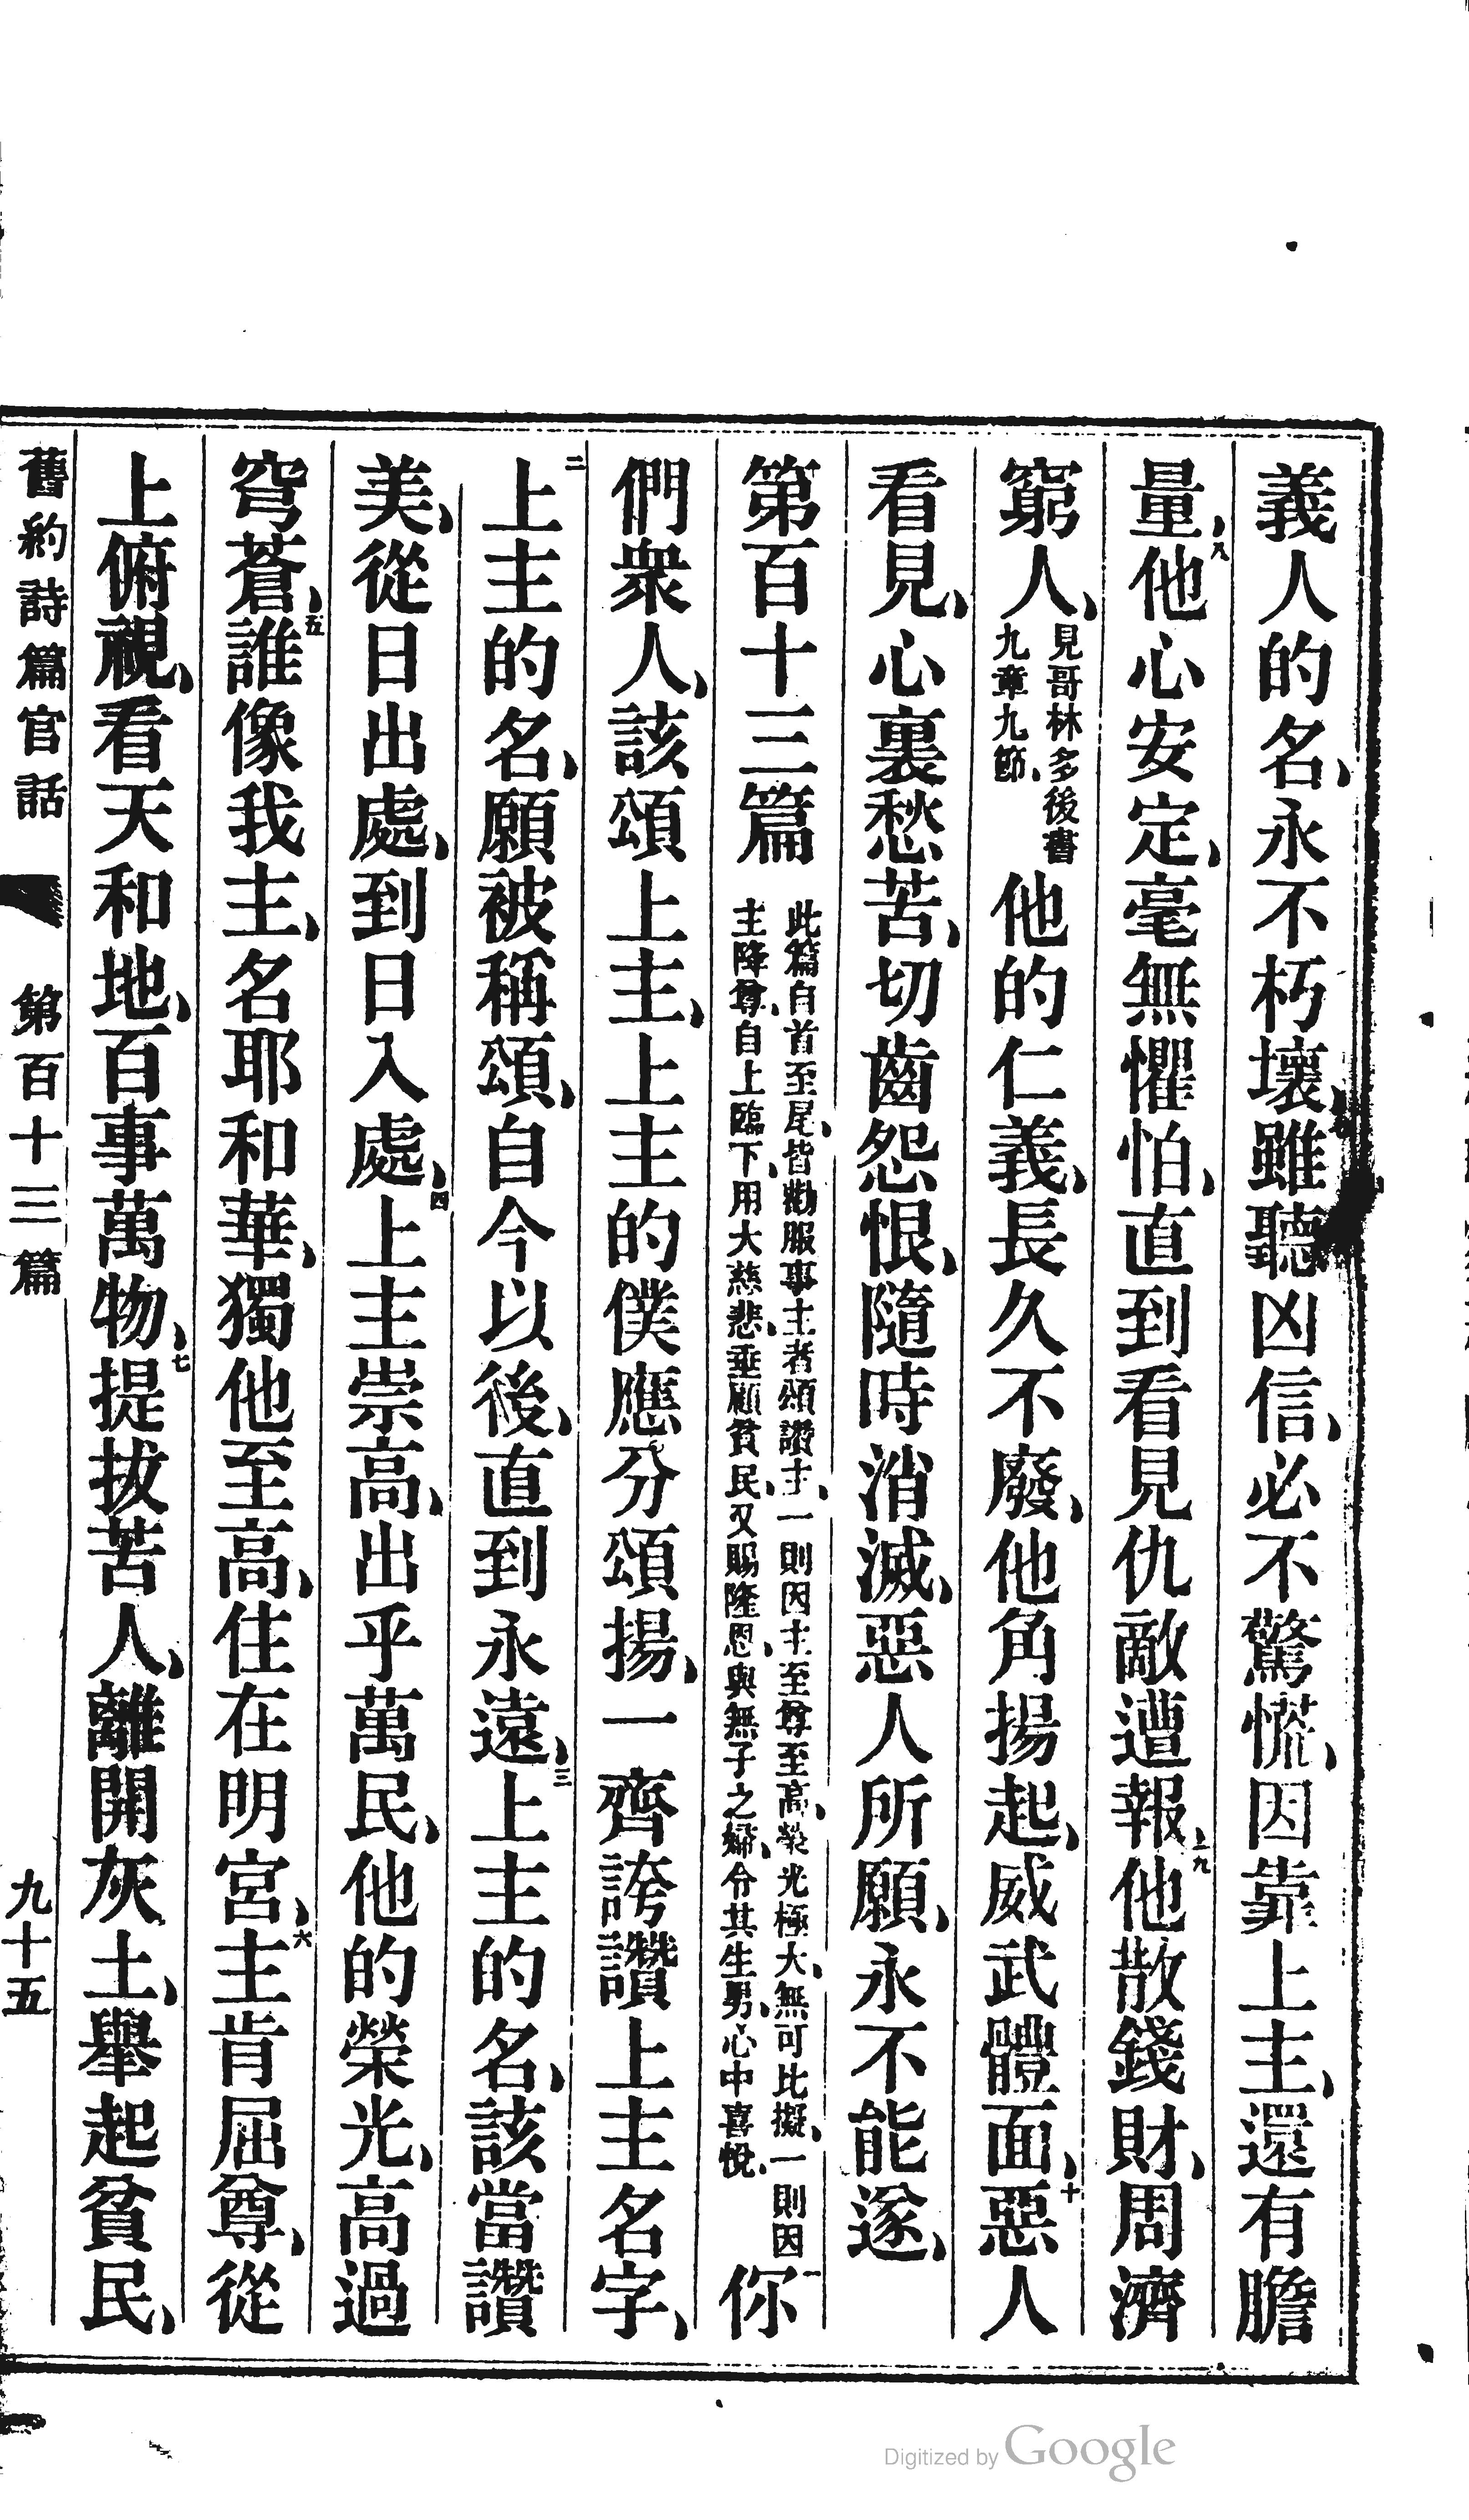 義人的名、永不朽壞、雖聽凶信、必不驚慌、因靠上主、還有膽
量、八他心安定、毫無懼怕、直到看見仇敵遭報、九他散錢財、周濟
窮人、見哥林多後書九章九節、他的仁義、長久不廢、他角揚起、威武體面、十惡人
看見、心裏愁苦、切齒怨恨、隨時消滅、惡人所願、永不能遂、
第百十三篇 此篇自首至尾、皆勸服事主者頌讚主、一則因主至尊至高、榮光極大、無可比擬、一則因主降尊、自上臨下、用大慈悲、垂顧貧民、又賜隆恩、與無子之婦、令其生男、心中喜悅、 一你
們衆人、該頌上主、上主的僕應分頌揚、一齊誇讚上主名字、
二上主的名、願被稱頌、自今以後、直到永遠、三上主的名、該當讚
美、從日出處、到日入處、四上主崇高、出乎萬民、他的榮光、高過
穹蒼、五誰像我主、名耶和華、獨他至高、住在明宮、六主肯屈尊、從
上俯視、看天和地、百事萬物、七提拔苦人、離開灰土、舉起貧民、
舊約詩篇官話 第百十三篇 九十五
Digitized by Google